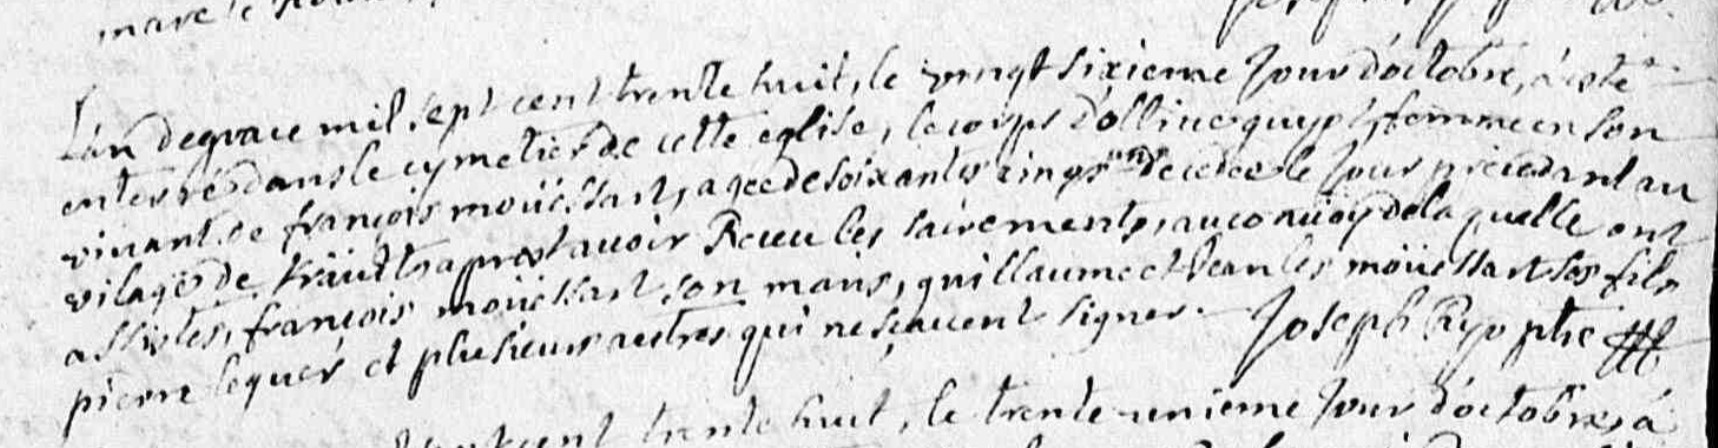 marc le
L'an de grace mil sept cent trente huit, le vingt sixieme Jour d'octobre, a esté
enterré dans le cymetier de cette eglise, le corps d'ollive guyo, femme en son
vivant de françois moüessart, agee de soixante cinq ans decedee le Jour precedant au
vilage de apres avoir Receu les sacrements, au convoy de la quelle ont
assistes, françois moüessart son maris, guillaume et Jean les moüessart ses fils
pierre lequer, et plusieurs autres qui ne sçavent signer. Joseph Ryo ptre
cent trente huit, le trente-unieme Jour d'octobre, a